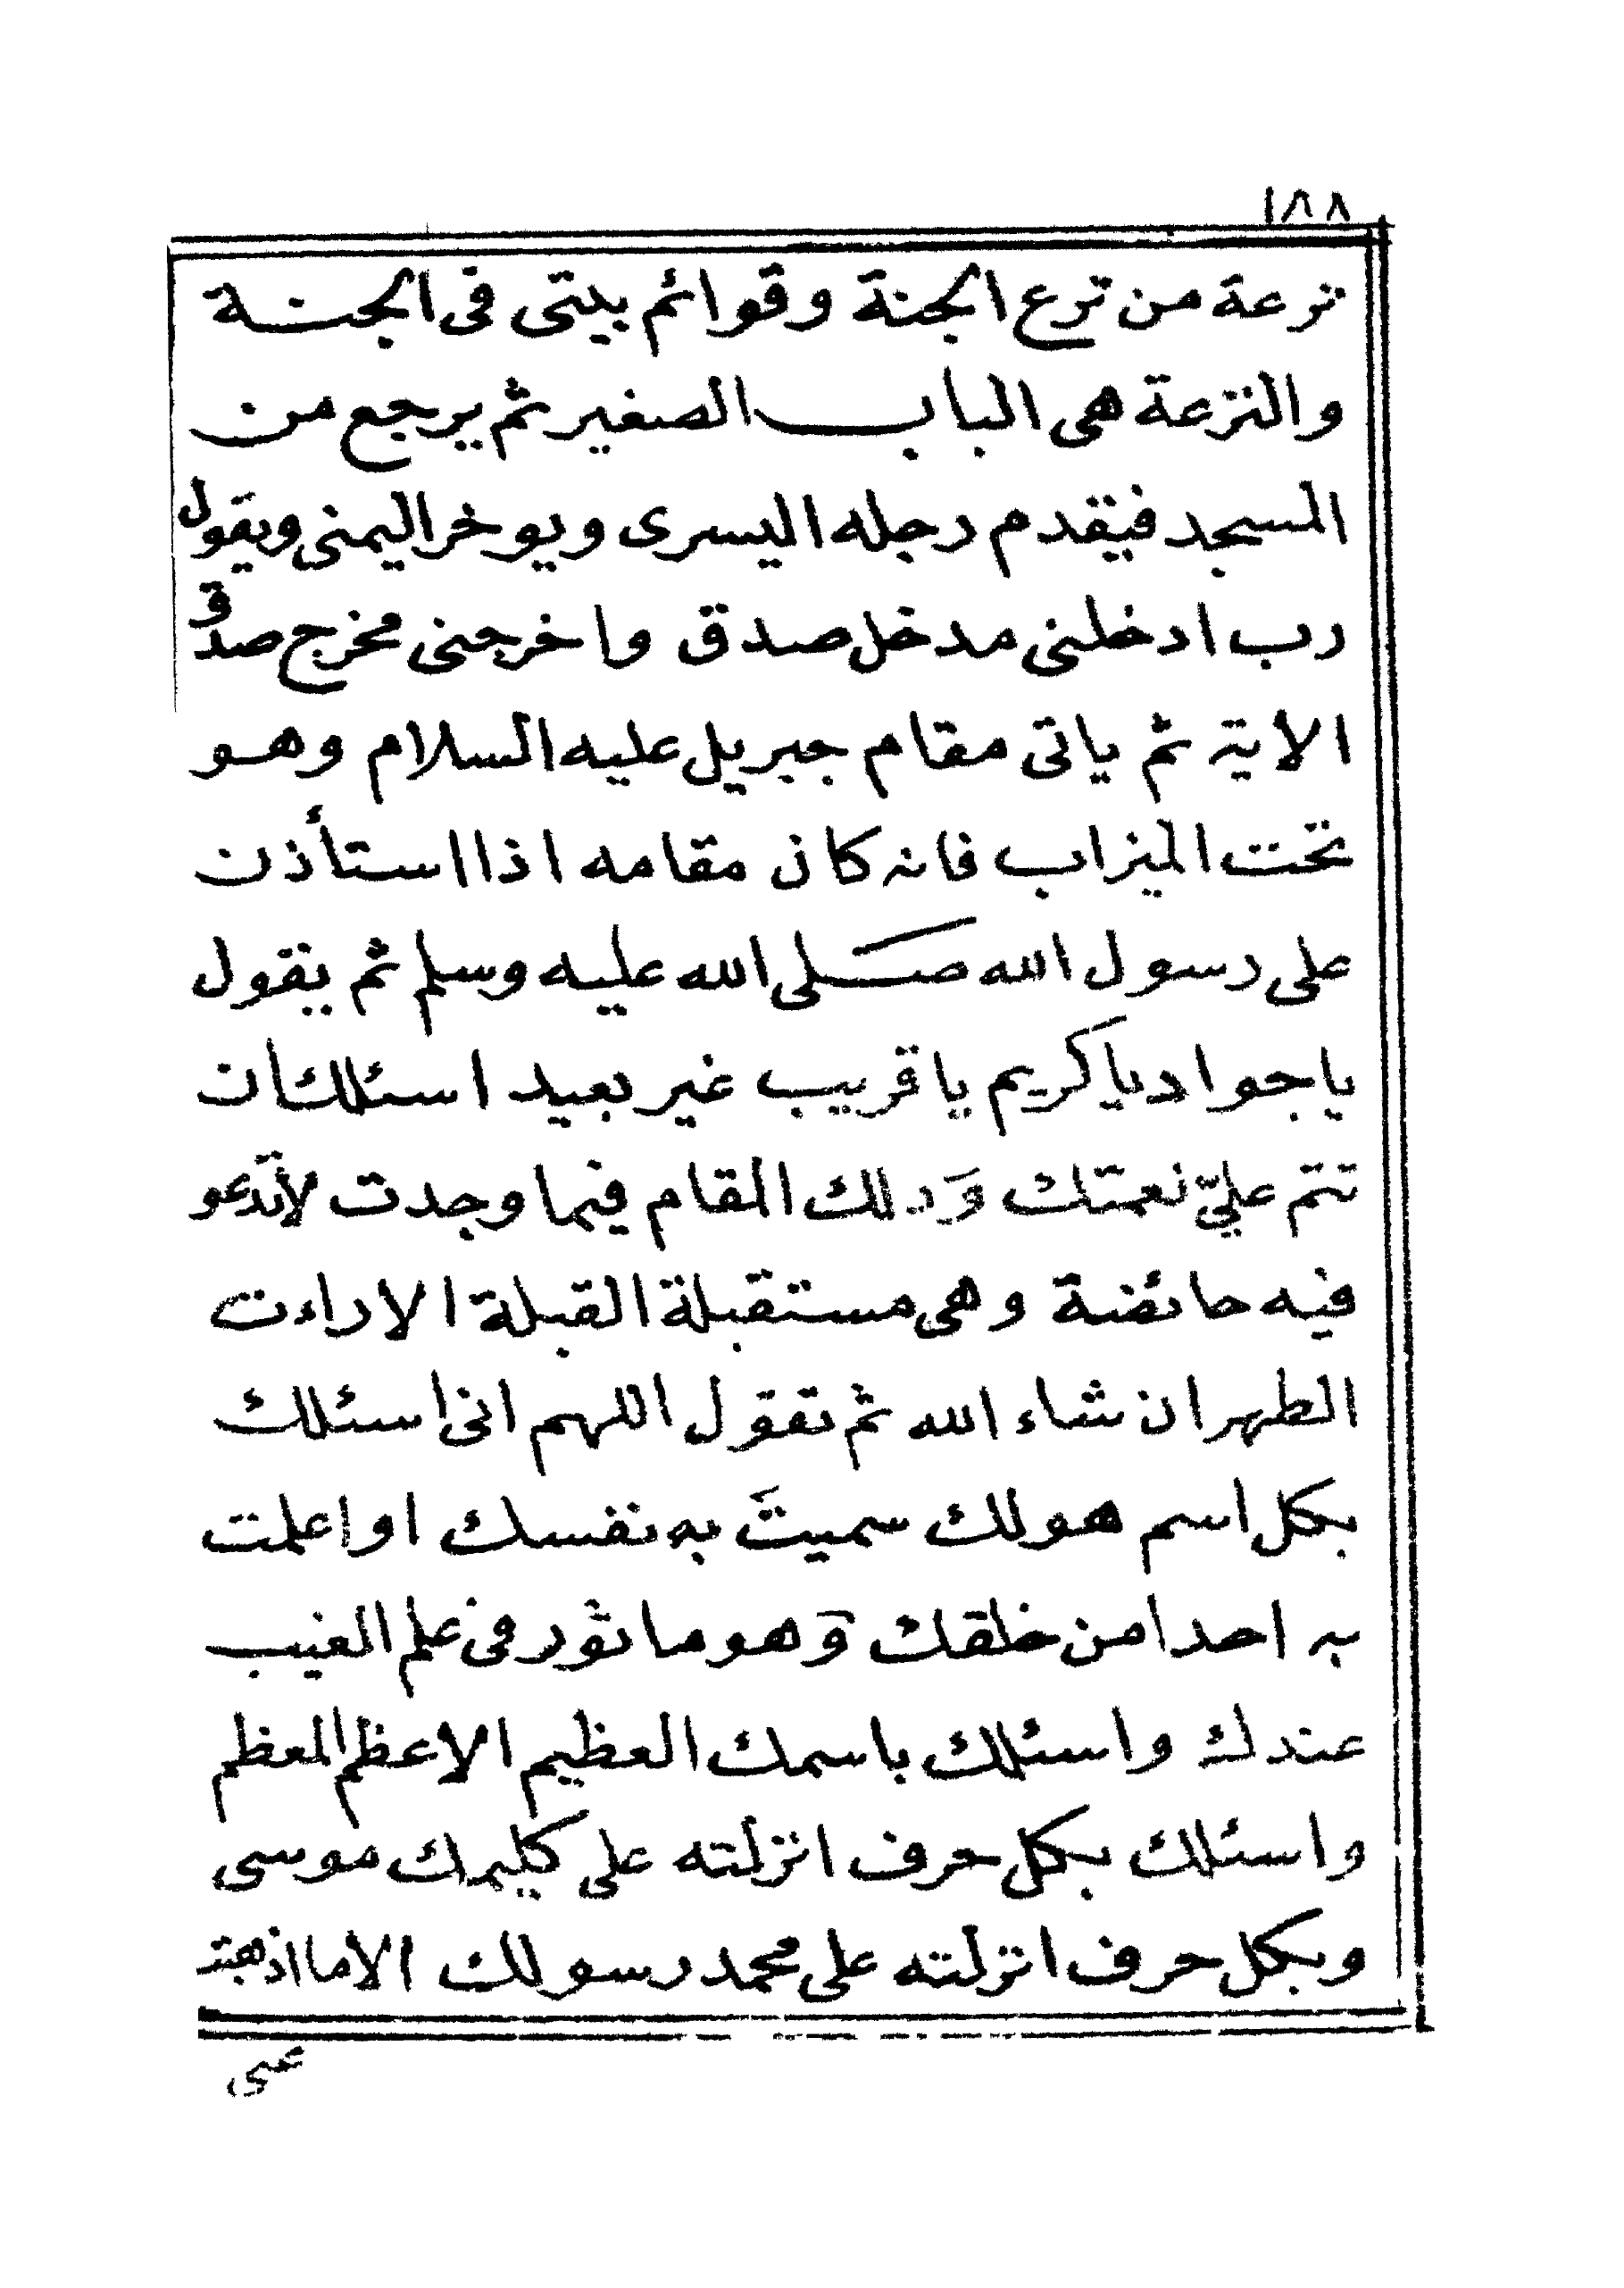 ١٨٨
ترعة من ترع الجنة وقوائم بيتى فى الجنة
والنزعة هى الباب الصغير ثم يرجع من
المسجد فيقدم رجله اليسرى ويوخر اليمنى ويقول
رب ادخلنى مدخل صدق واخرجنى مخرج صدق
الاية ثم ياتى مقام جبريل عليه السلام وهو
تحت الميزاب فانه كان مقامه اذا استأذن
على رسول الله صلى الله عليه وسلم ثم يقول
ياجواد ياكريم يا قريب غير بعيد اسئلك ان
تتم علىّ نعمتك وَذلك المقام فيما وجدت لاتدعو
فيه حائضة وهى مستقبلة القبلة الاراءت
الطهر ان شاء الله ثم تقول اللهم انى اسئلك
بكل اسم هو لك سميتَ به نفسك او اعلمت
به احدا من خلقك وَهو ماثور فى علم الغيب
عندك واسئلك باسمك العظيم الاعظم المعظم
واسئلك بكل حرف انزلته على كليمك موسى
وبكل حرف انزلته على محمد رسولك الاما اذهبت
عنى